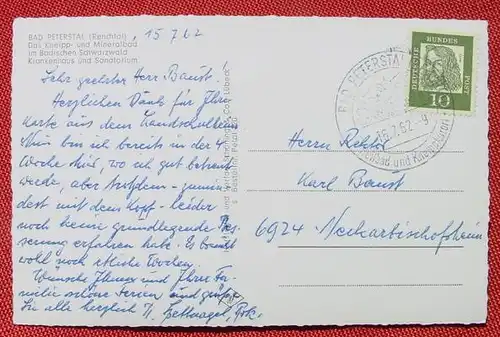 BAD PETERSTAL (Renchtal)
Das Kneipp- und Mineralbad
im Badischen Schwarzwald
Krankenhaus und Sanatorium
, 15 7 62
Sehr geehrter Herr Baust!
Herzlichen Dank für Ihre
Karte aus dem Landschulheim
Nun bin ich bereits in der 4.
Woche hier, wo ich gut betreut
werde, aber trotzdem - zumin-
dest mit dem Kopf - leider
noch keine grundlegende Bes-
serung erfahren habe. Es braucht
wohl noch etliche Wochen.
Wünsche Ihnen und Ihrer Fa-
milie schöne Ferien und grüße
Sie alle herzlich
BAD PETERSTAL
16.7.62-9
DEUTSCHE BUNDESPOST
10
Herrn Rektor
Karl Baust
6924 Neckarbischofsheim